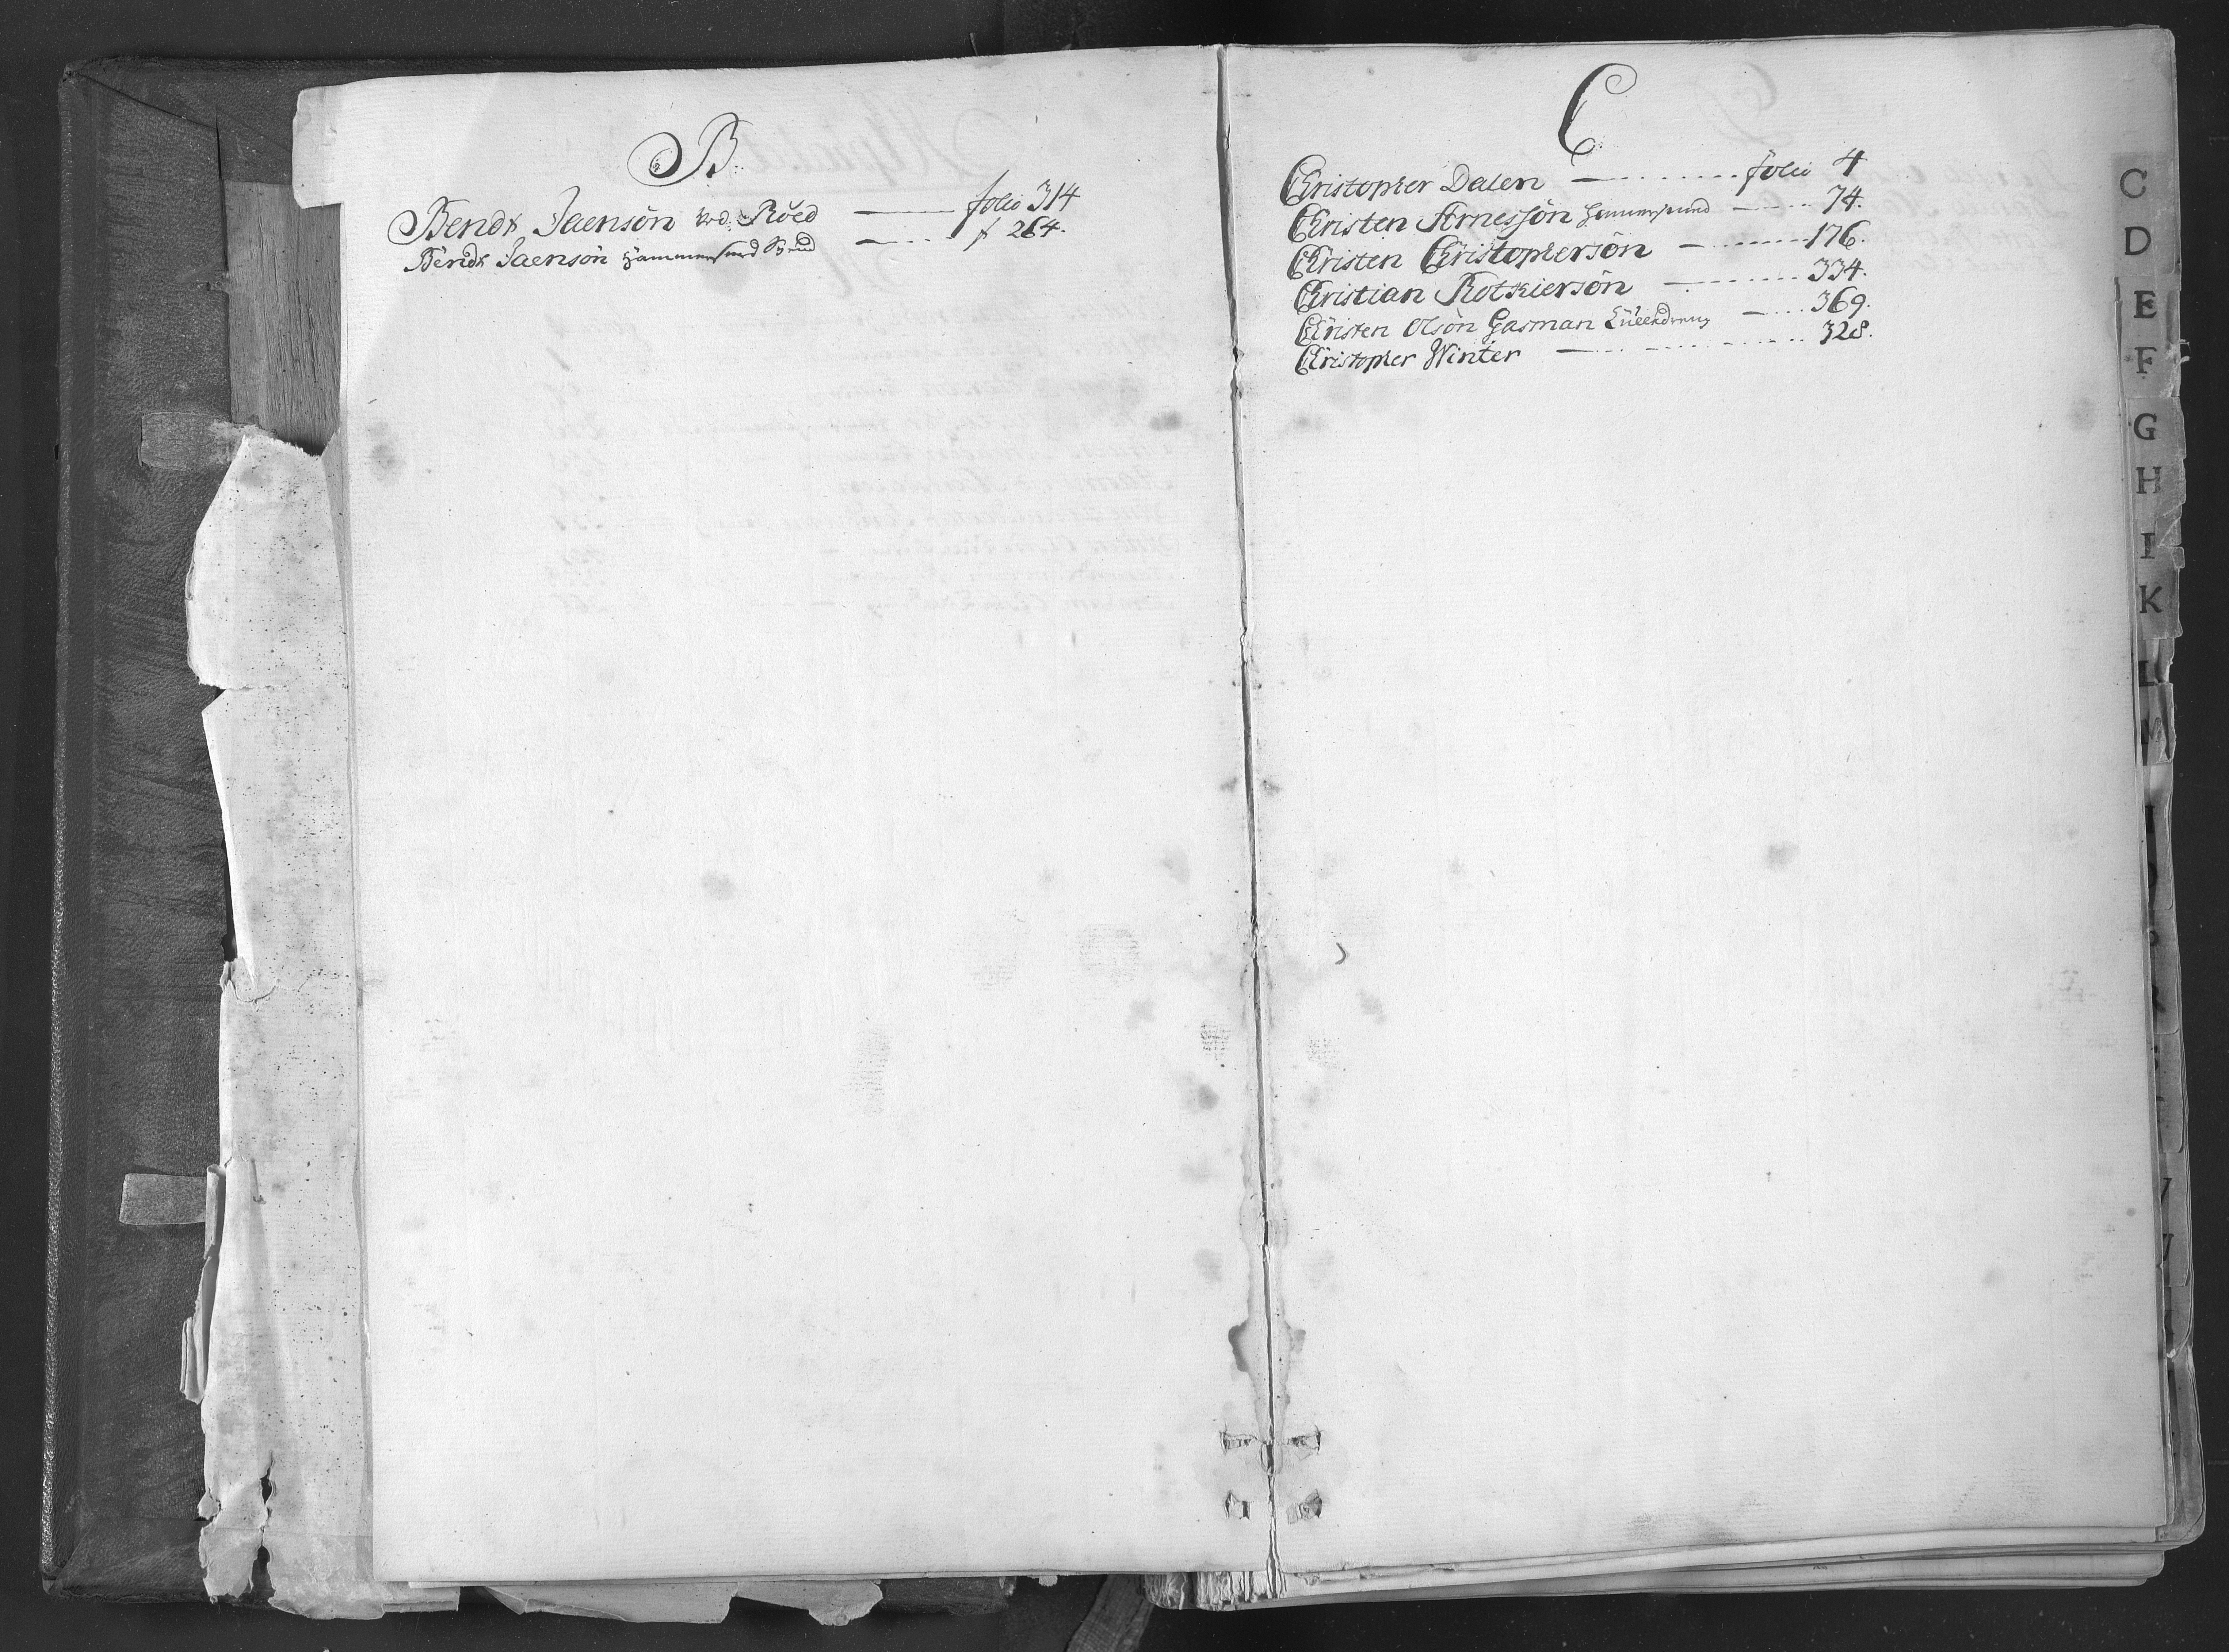 B.
Bendt Jaensön Röed folio 314
Bendt Jaensön Hammersund f 264.
C
Christopher Dalen folio 4
Christen Arnessön Hammersund 74.
Christen Christophersön 176.
Christian Rothiersön 334.
Christen Olsön Gasman 369.
Christopher Winter 328.
C
D
E
F
G
H
I
K
L
M